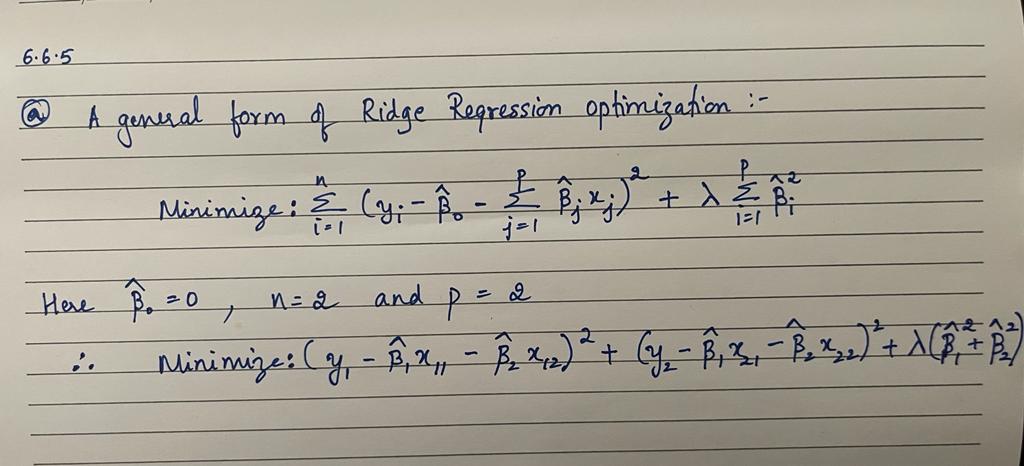 6.6.5
ⓐ A general form of Ridge Regression optimization :-
Minimize: Σᵢ₌₁ⁿ (yᵢ - β̂₀ - Σⱼ₌₁ᵖ β̂ⱼ xⱼ)² + λ Σᵢ₌₁ᵖ β̂ᵢ²
Here β̂₀ = 0 , n = 2 and p = 2
∴ Minimize: (y₁ - β̂₁x₁₁ - β̂₂x₁₂)² + (y₂ - β̂₁x₂₁ - β̂₂x₂₂)² + λ(β̂₁² + β̂₂²)